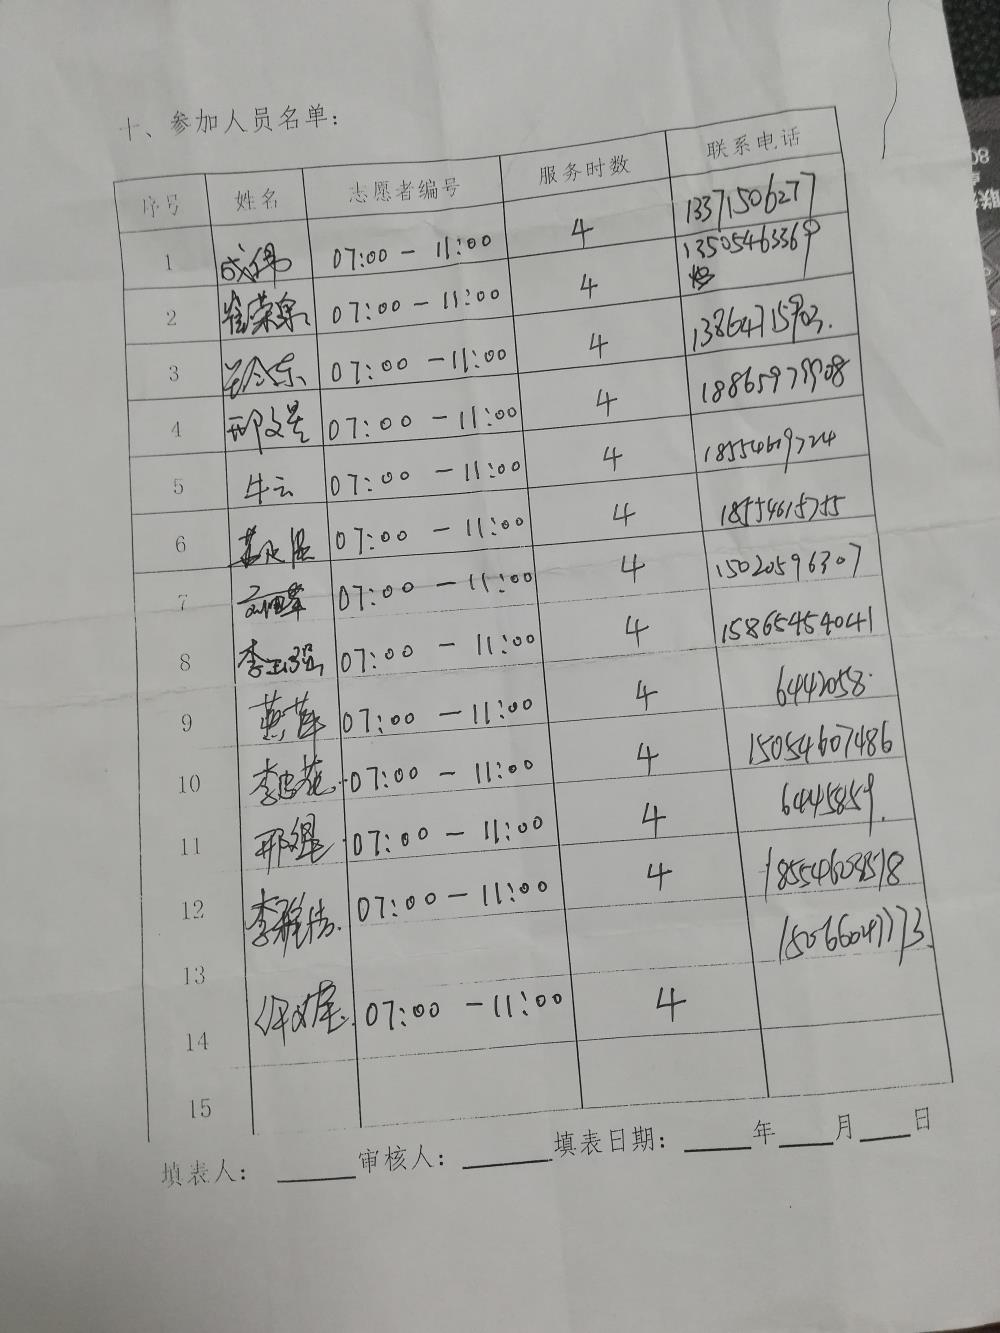 十、参加人员名单：
序号 姓名 志愿者编号 服务时数 联系电话
1 07:00-11:00 4 13371506277
2 崔荣泉 07:00-11:00 4 13505463369
3 07:00-11:00 4 13864715903.
4 邢文星 07:00-11:00 4 18865979908
5 牛云 07:00-11:00 4 18554609724
6 07:00-11:00 4 18554615755
7 07:00-11:00 4 15020596307
8 李玉强 07:00-11:00 4 15865454041
9 燕萍 07:00-11:00 4 6442058.
10 李忠花 07:00-11:00 4 15054607486
11 07:00-11:00 4 6445859.
12 李雅倩 07:00-11:00 4
13 15066047773.
14 07:00-11:00 4
15
填表人： 审核人： 填表日期： 年 月 日